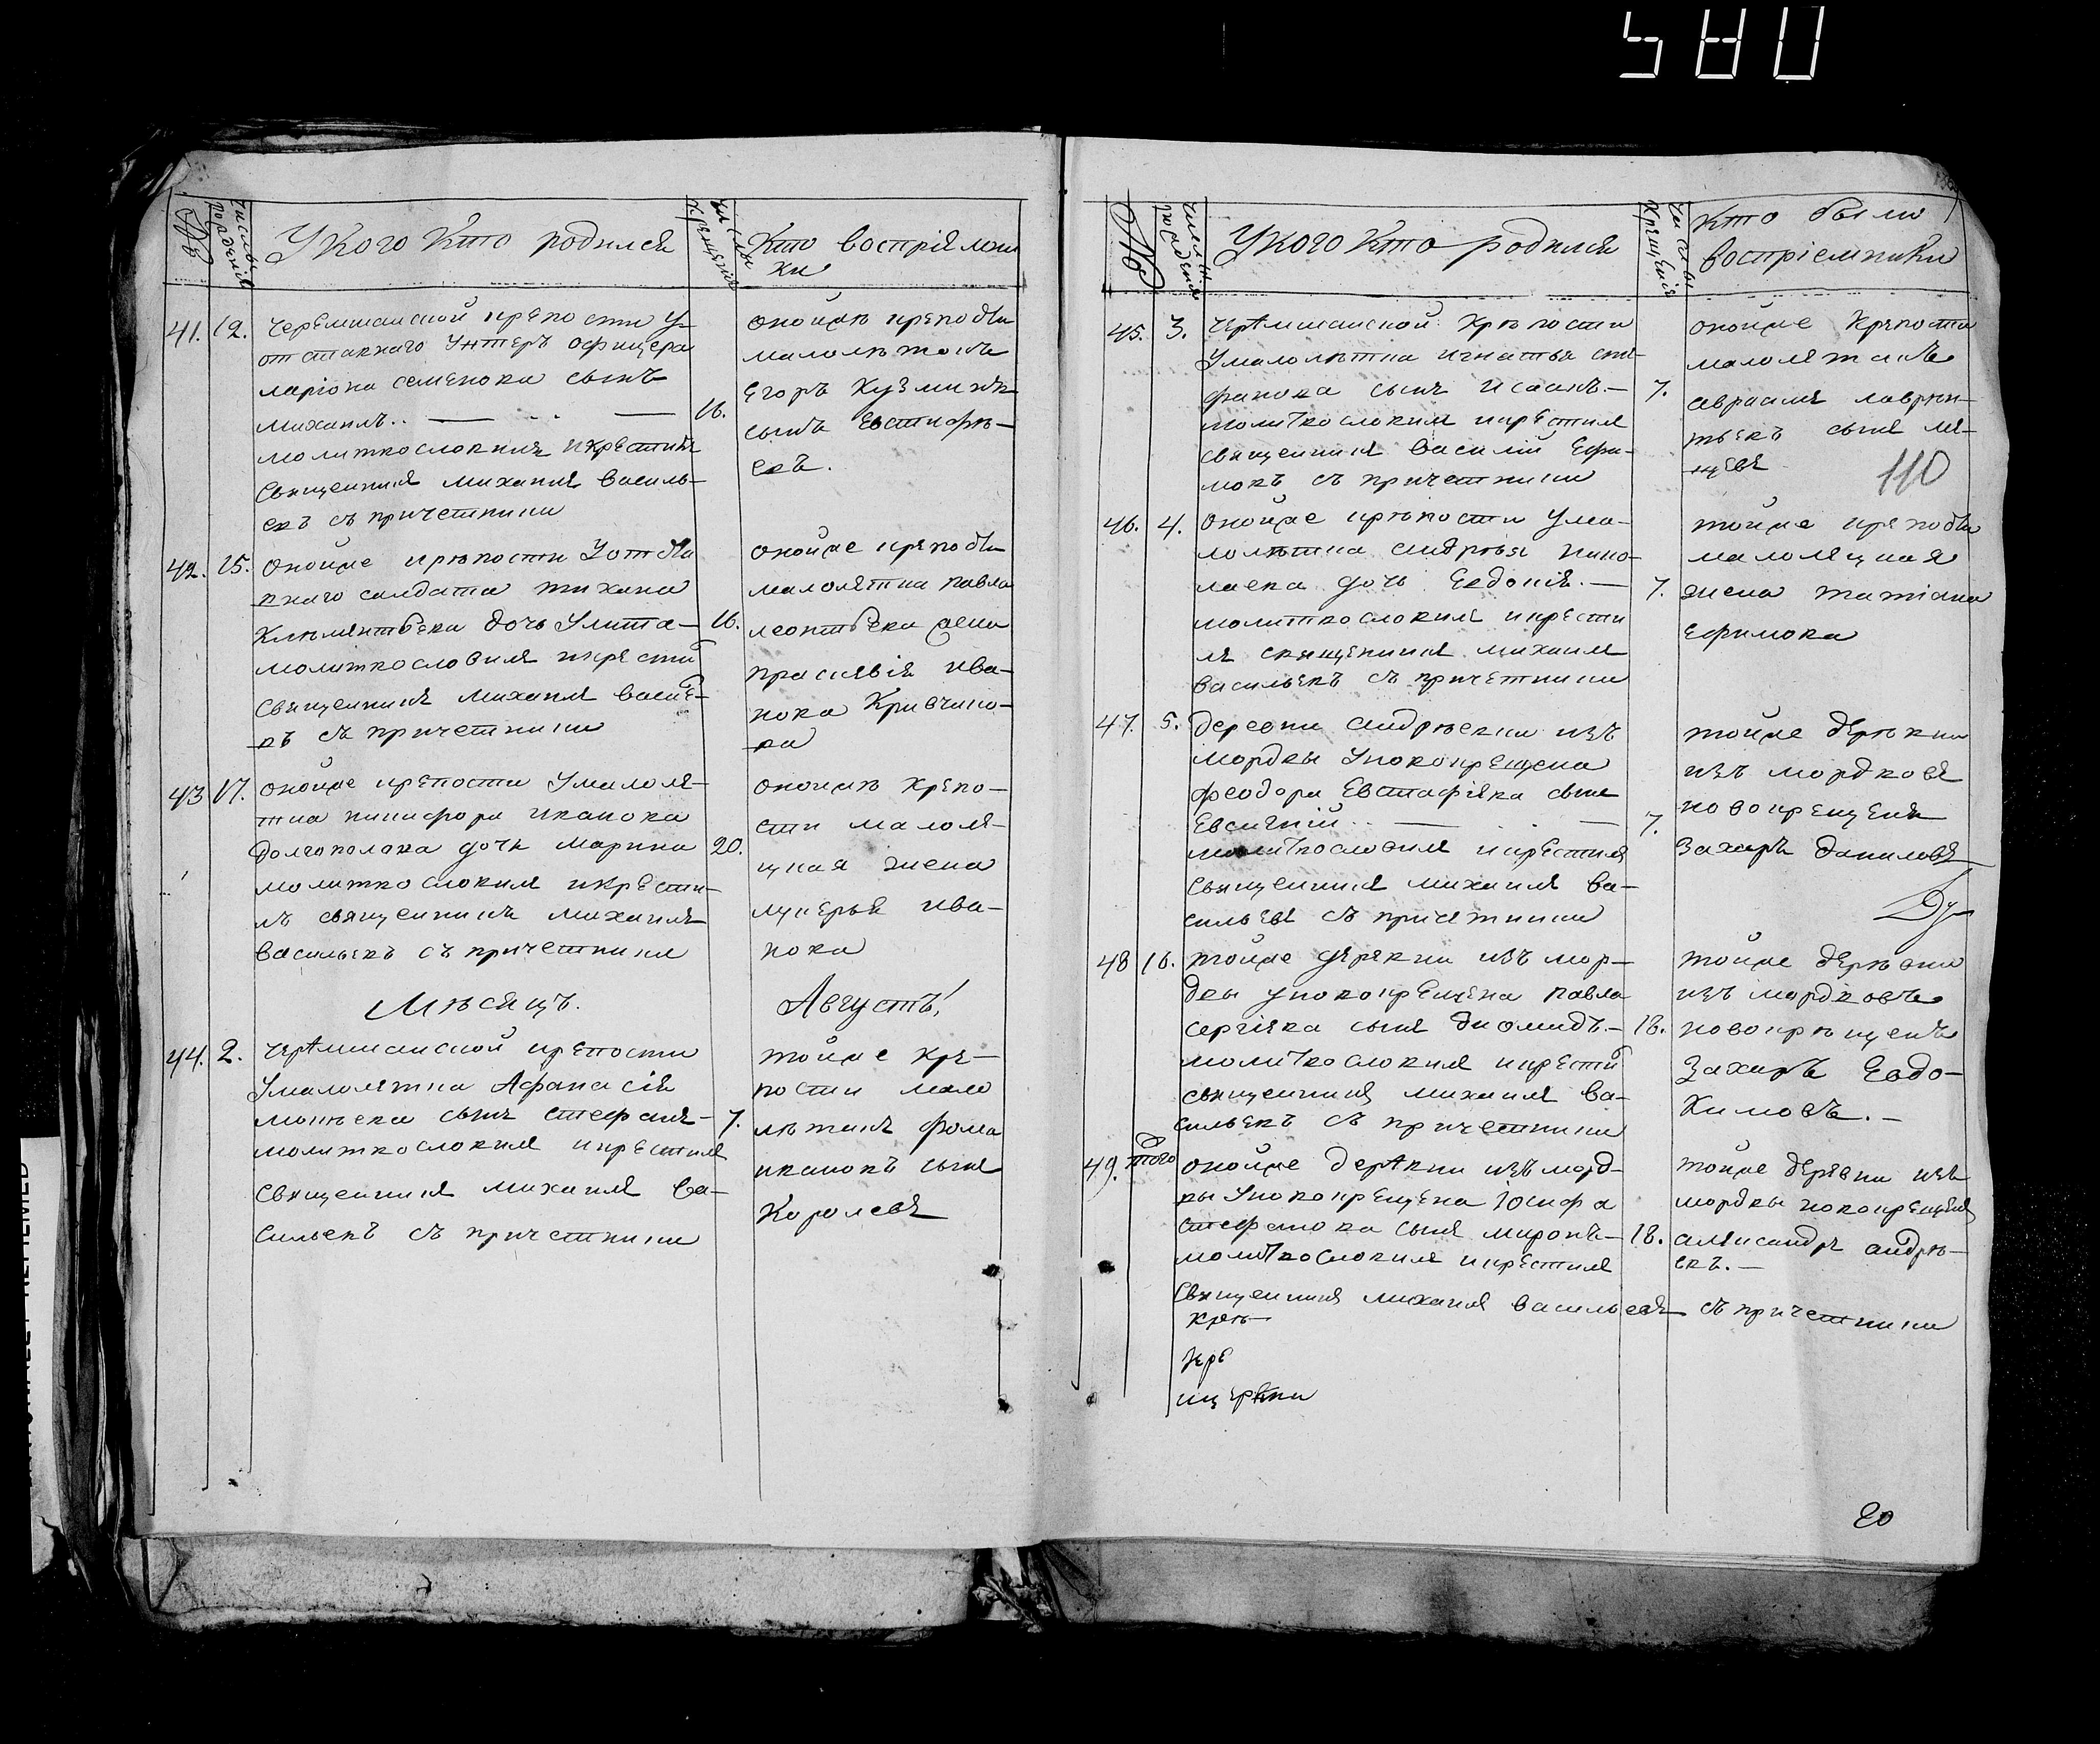 580
№
Числы рожденія
У кого кто родился
Числы крещенія
Кто воспріемни
ки
41.
12.
Черемшанской крепости у
отставнаго Унтеръ офицера
Ларіона семенова сынъ
михаилъ..
молитвословилъ и крестилъ
Священникъ михаилъ василь-
евъ съ причетники
16.
оной же крепости
малолетокъ
Егоръ Кузминъ
сынъ Евстифе-
евъ.
42.
15.
оной же крѣпости У отста
внаго салдата тихана
Клементьева дочь Улита-
молитвословилъ и крести
Священникъ михаилъ василье-
въ съ причетники
16.
оной же крепости
малолетка павла
леонтьева жена
прасковія ива-
нова Кривчико-
ва
43
17.
оной же крепости У малоле-
тка никифора иванова
Долгополова дочь марина
молитвословилъ и крести-
лъ священникъ михаилъ
васильевъ съ причетники
20.
оной же крепо-
сти малоле-
цкая жена
лукерья ива-
нова
Мѣсяцъ.
Августъ!
44.
2.
Черемшанской крепости
У малолетка Афанасія
сынъ стефанъ-
молитвословилъ и крестилъ
Священникъ михаилъ ва-
сильевъ съ причетники
7.
той же кре-
пости мало
лѣтокъ фома
ивановъ сынъ
Королевъ
№
Числы рожденія
У кого кто родился
Числы крещенія
Кто были
воспріемники
45.
3.
Черемшанской Крѣпости
У малолѣтка игнатья сте-
фанова сынъ исаакъ.-
молитвословилъ и крестилъ
священникъ василій Ефи-
мовъ съ причетники
7.
оной же крепости
малолетокъ
авраамъ лаврен-
тьевъ сынъ
110
46.
4.
оной же крѣпости У ма-
лолѣтка андрѣя нико-
лаева дочь Евдокія.-
молитвословилъ и крести
лъ священникъ михаилъ
васильевъ съ причетники
7.
той же крепости
малолецкая
жена татіана
ефимова
47.
5.
Деревни андрѣевки изъ
мордвы У новокрещена
феодора Евстафіева сынъ
Евсигній..
молитвословилъ и крестилъ
священникъ михаилъ ва-
сильевъ съ причетники
7.
той же деревни
изъ мордвовъ
новокрещенъ
Захаръ даниловъ
48
16.
той же деревни изъ мор-
двы у новокрещена павла
сергіева сынъ диомидъ.-
молитвословилъ и крести
священникъ михаилъ ва-
сильевъ съ причетники
18.
той же деревни
изъ мордвовъ
новокрещенъ
Захаръ Евдо-
кимовъ.-
49.
того
оной же деревни изъ морд-
вы У новокрещена Іосифа
стефанова сынъ миронъ-
молитвословилъ и крестилъ
священникъ михаилъ васильевъ съ причетники
18.
той же деревни изъ
мордвы новокрещенъ
александръ андрѣ-
евъ.-
20